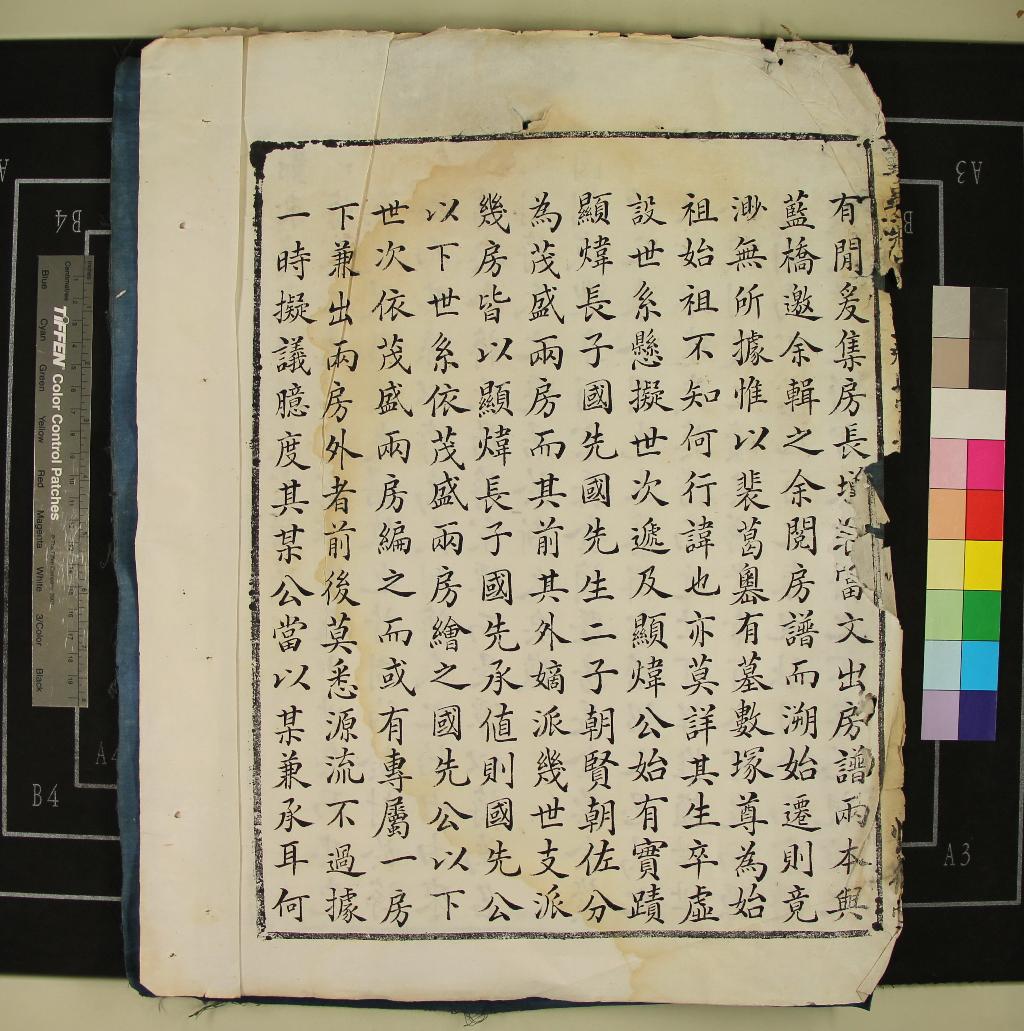 有閒爰集房長增裳當文出房譜兩本與
藍橋邀余輯之余閱房譜而溯始遷則竟
渺無所據惟以裴葛嶴有墓數塚尊為始
祖始祖不知何行諱也亦莫詳其生卒虛
設世系懸擬世次遞及顯煒公始有實蹟
顯煒長子國先國先生二子朝賢朝佐分
為茂盛兩房而其前其外嫡派幾世支派
幾房皆以顯煒長子國先承値則國先公
以下世系依茂盛兩房繪之國先公以下
世次依茂盛兩房編之而或有專屬一房
下兼出兩房外者前後莫悉源流不過據
一時擬議臆度其某公當以某兼承耳何
TIFFEN Color Control Patches
Centimetres
Inches
Blue
Cyan
Green
Yellow
Red
Magenta
White
3/Color
Black
B4
A3
B4
A3